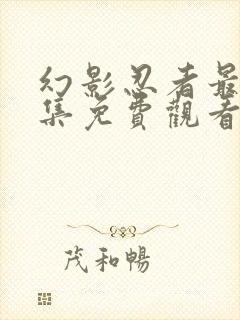 幻影忍者最
集免費觀看
茂和暢